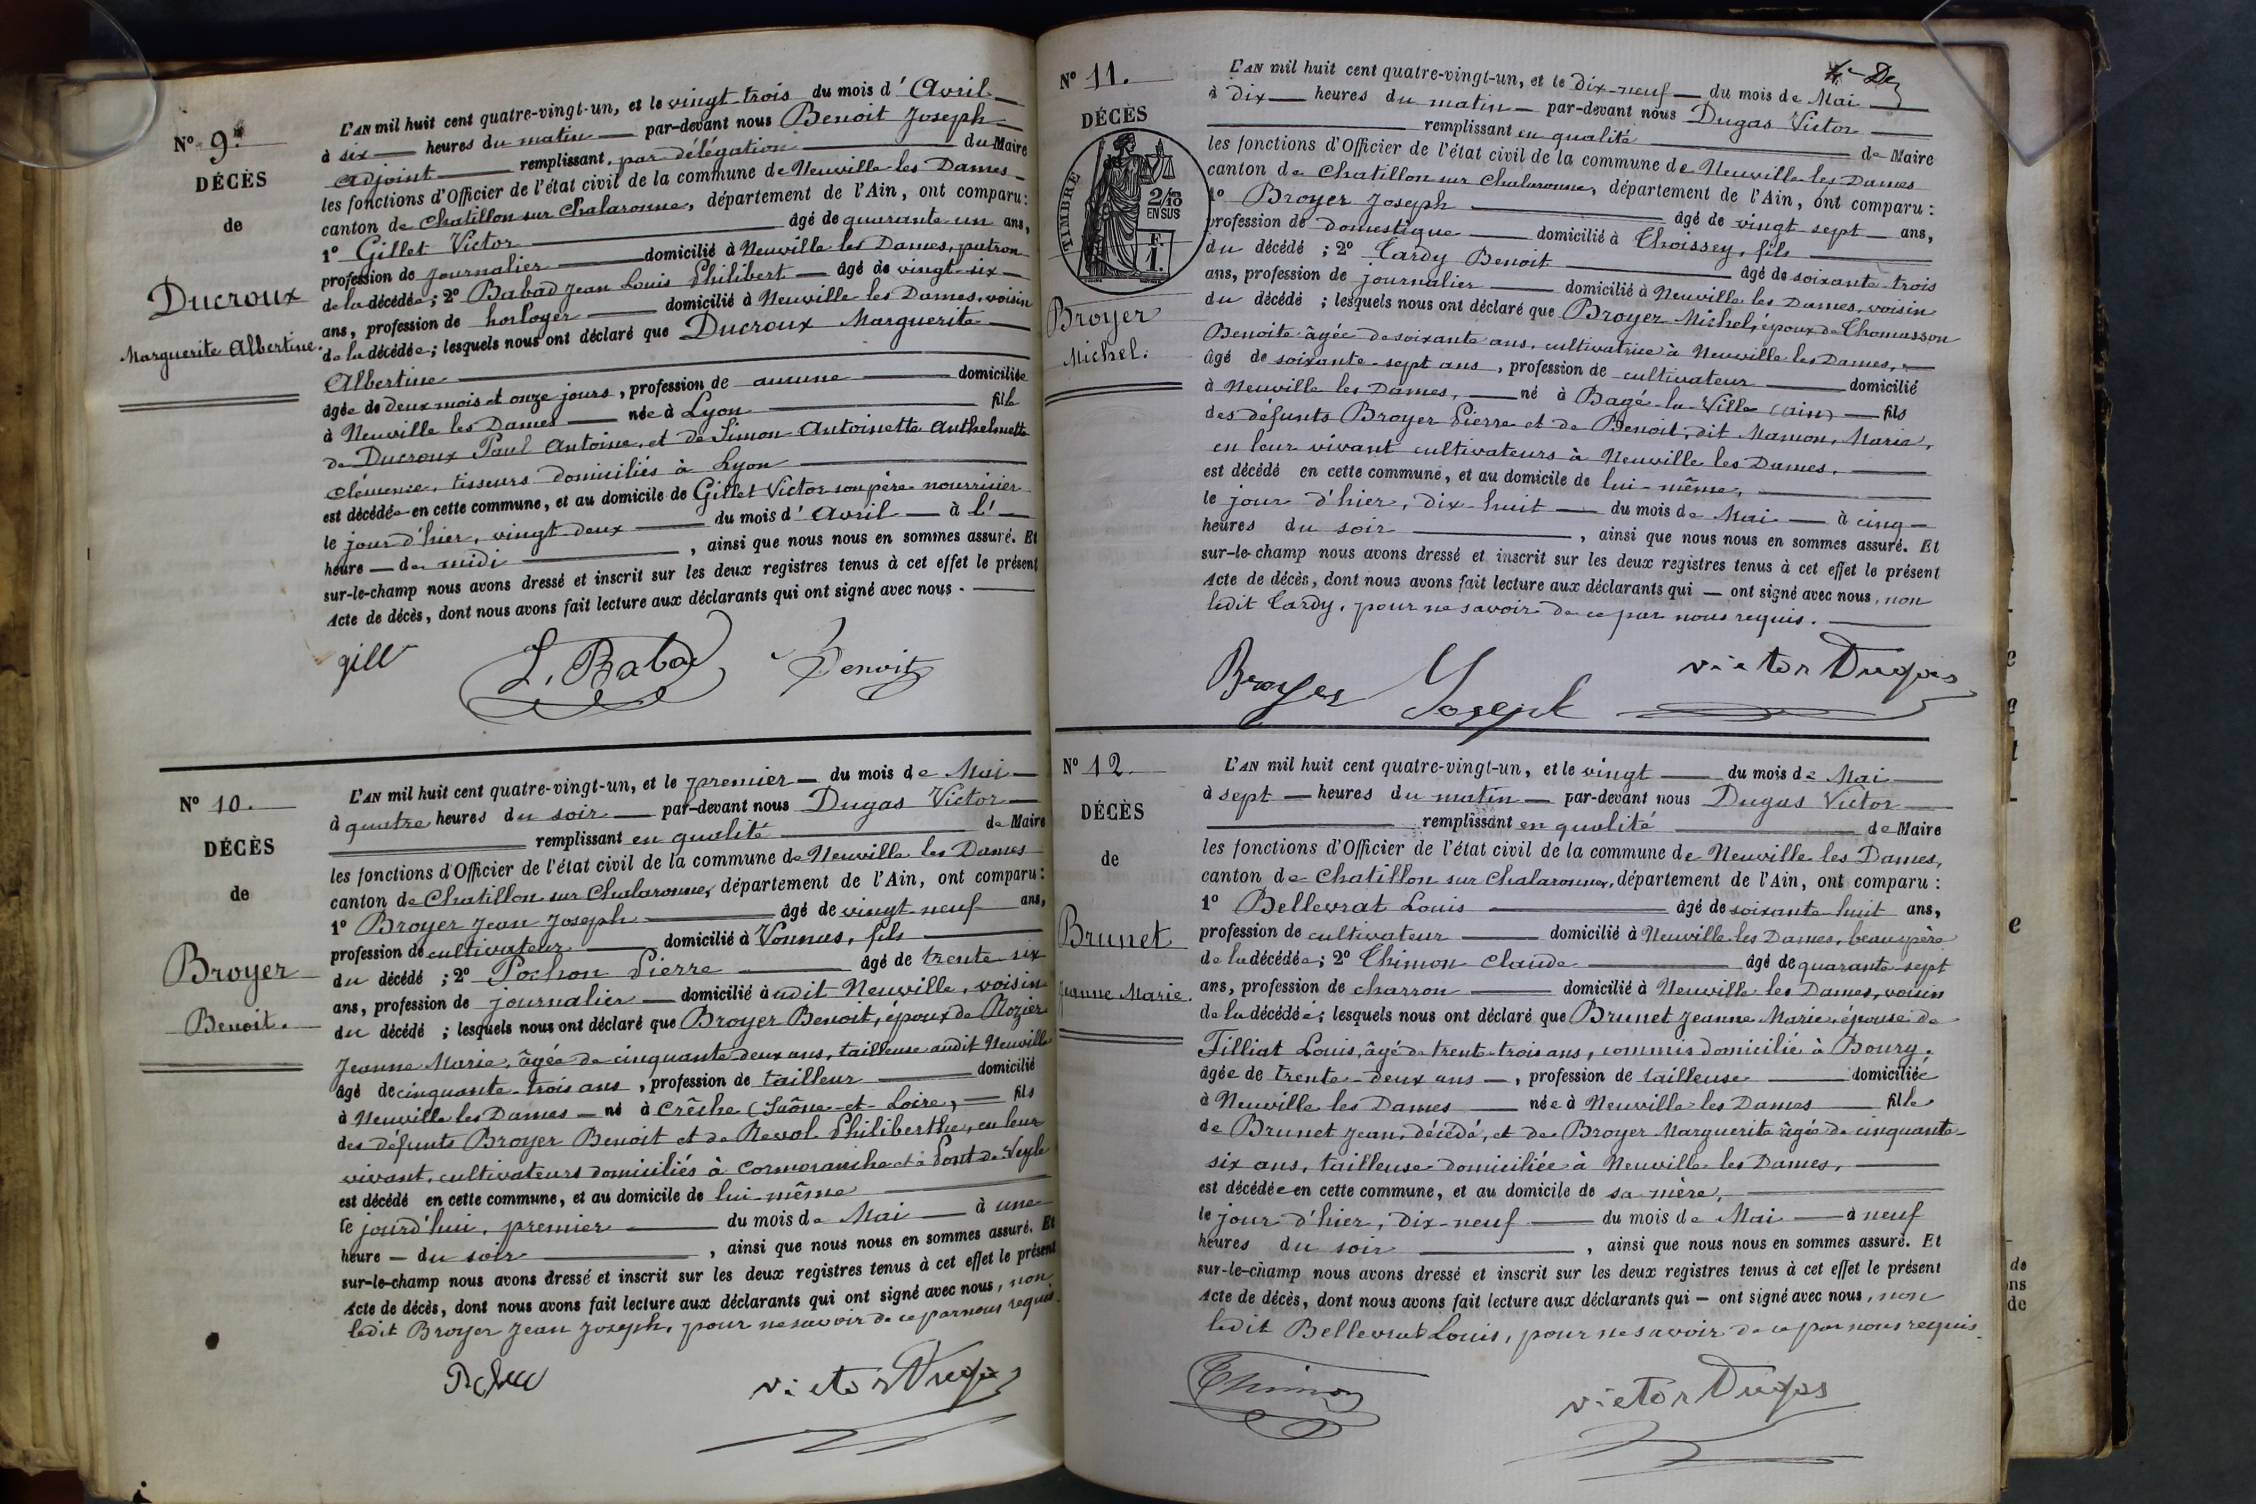 N° 9.
DÉCÈS
de
Ducroux
Marguerite Albertine.
L'AN mil huit cent quatre-vingt-un, et le vingt-trois du mois d'Avril
à six heures du matin par-devant nous Benoit Joseph
adjoint remplissant par délégation du Maire
les fonctions d'Officier de l'état civil de la commune de Neuville les Dames
canton de Chatillon sur Chalaronne, département de l'Ain, ont comparu :
1° Gillet Victor âgé de quarante un ans,
profession de journalier domicilié à Neuville les Dames, patron
de la décédée ; 2° Babad Jean Louis Philibert âgé de vingt-six
ans, profession de horloger domicilié à Neuville les Dames, voisin
de la décédée ; lesquels nous ont déclaré que Ducroux Marguerite
Albertine
âgée de deux mois et onze jours, profession de aucune domiciliée
à Neuville les Dames née à Lyon fille
de Ducroux Paul Antoine, et de Simon Antoinette Anthelmette
Clémence, tisseurs domiciliés à Lyon
est décédée en cette commune, et au domicile de Gillet Victor son père nourricier
le jour d'hier, vingt deux du mois d'Avril à l'
heure de midi , ainsi que nous nous en sommes assuré. Et
sur-le-champ nous avons dressé et inscrit sur les deux registres tenus à cet effet le présent
Acte de décès, dont nous avons fait lecture aux déclarants qui ont signé avec nous.
gill L. Babad Benoit
N° 10.
DÉCÈS
de
Broyer
Benoit.
L'AN mil huit cent quatre-vingt-un, et le premier du mois de Mai
à quatre heures du soir par-devant nous Dugas Victor
remplissant en qualité de Maire
les fonctions d'Officier de l'état civil de la commune de Neuville les Dames
canton de Chatillon sur Chalaronne, département de l'Ain, ont comparu :
1° Broyer Jean Joseph âgé de vingt-neuf ans,
profession de cultivateur domicilié à Vonnas, fils
du décédé ; 2° Pochon Pierre âgé de trente-six
ans, profession de journalier domicilié à udit Neuville, voisin
du décédé ; lesquels nous ont déclaré que Broyer Benoit, époux de Rozier
Jeanne Marie, âgée de cinquante deux ans, tailleuse audit Neuville
âgé de cinquante-trois ans, profession de tailleur domicilié
à Neuville les Dames né à Crêche (Saône-et-Loire, fils
des défunts Broyer Benoit et de Revol Philiberthe, en leur
vivant, cultivateurs domiciliés à Cormoranche et à Pont de Veyle
est décédé en cette commune, et au domicile de lui-même
le jourd'hui, premier du mois de Mai à une
heure du soir , ainsi que nous nous en sommes assuré. Et
sur-le-champ nous avons dressé et inscrit sur les deux registres tenus à cet effet le présent
Acte de décès, dont nous avons fait lecture aux déclarants qui ont signé avec nous, non
ledit Broyer Jean Joseph, pour ne savoir de ce par nous requis.
victor Dugas
4e De
N° 11.
DÉCÈS
TIMBRE
2/10
EN SUS
F.
1.
Broyer
Michel.
L'AN mil huit cent quatre-vingt-un, et le dix-neuf du mois de Mai
à dix heures du matin par-devant nous Dugas Victor
remplissant en qualité de Maire
les fonctions d'Officier de l'état civil de la commune de Neuville les Dames
canton de Chatillon sur Chalaronne, département de l'Ain, ont comparu :
1° Broyer Joseph âgé de vingt sept ans,
profession de domestique domicilié à Thoissey, fils
du décédé ; 2° Tardy Benoit âgé de soixante-trois
ans, profession de journalier domicilié à Neuville les Dames, voisin
du décédé ; lesquels nous ont déclaré que Broyer Michel, époux de Thomasson
Benoite âgée de soixante ans, cultivatrice à Neuville les Dames,
âgé de soixante-sept ans, profession de cultivateur domicilié
à Neuville les Dames, né à Bagé-la-Ville (ain) fils
des défunts Broyer Pierre et de Benoit, dit Mamon, Marie,
en leur vivant cultivateurs à Neuville les Dames.
est décédé en cette commune, et au domicile de lui-même,
le jour d'hier, dix-huit du mois de Mai à cinq
heures du soir , ainsi que nous nous en sommes assuré. Et
sur-le-champ nous avons dressé et inscrit sur les deux registres tenus à cet effet le présent
Acte de décès, dont nous avons fait lecture aux déclarants qui ont signé avec nous, non
ledit Tardy, pour ne savoir de ce par nous requis.
Broyer Joseph victor Dugas
N° 12.
DÉCÈS
de
Brunet
Jeanne Marie.
L'AN mil huit cent quatre-vingt-un, et le vingt du mois de Mai
à sept heures du matin par-devant nous Dugas Victor
remplissant en qualité de Maire
les fonctions d'Officier de l'état civil de la commune de Neuville les Dames,
canton de Chatillon sur Chalaronne, département de l'Ain, ont comparu :
1° Bellevrat Louis âgé de soixante-huit ans,
profession de cultivateur domicilié à Neuville les Dames, beau père
de la décédée ; 2° Thimon Claude âgé de quarante-sept
ans, profession de charron domicilié à Neuville les Dames, voisin
de la décédée ; lesquels nous ont déclaré que Brunet Jeanne Marie, épouse de
Filliat Louis, âgé de trente-trois ans, commis domicilié à Bourg.
âgée de trente-deux ans, profession de tailleuse domiciliée
à Neuville les Dames née à Neuville les Dames fille
de Brunet Jean, décédé, et de Broyer Marguerite âgée de cinquante-
six ans, tailleuse domiciliée à Neuville les Dames,
est décédée en cette commune, et au domicile de sa mère,
le jour d'hier, dix-neuf du mois de Mai à neuf
heures du soir , ainsi que nous nous en sommes assuré. Et
sur-le-champ nous avons dressé et inscrit sur les deux registres tenus à cet effet le présent
Acte de décès, dont nous avons fait lecture aux déclarants qui ont signé avec nous, non
ledit Bellevrat Louis, pour ne savoir de ce par nous requis.
Thimon victor Dugas